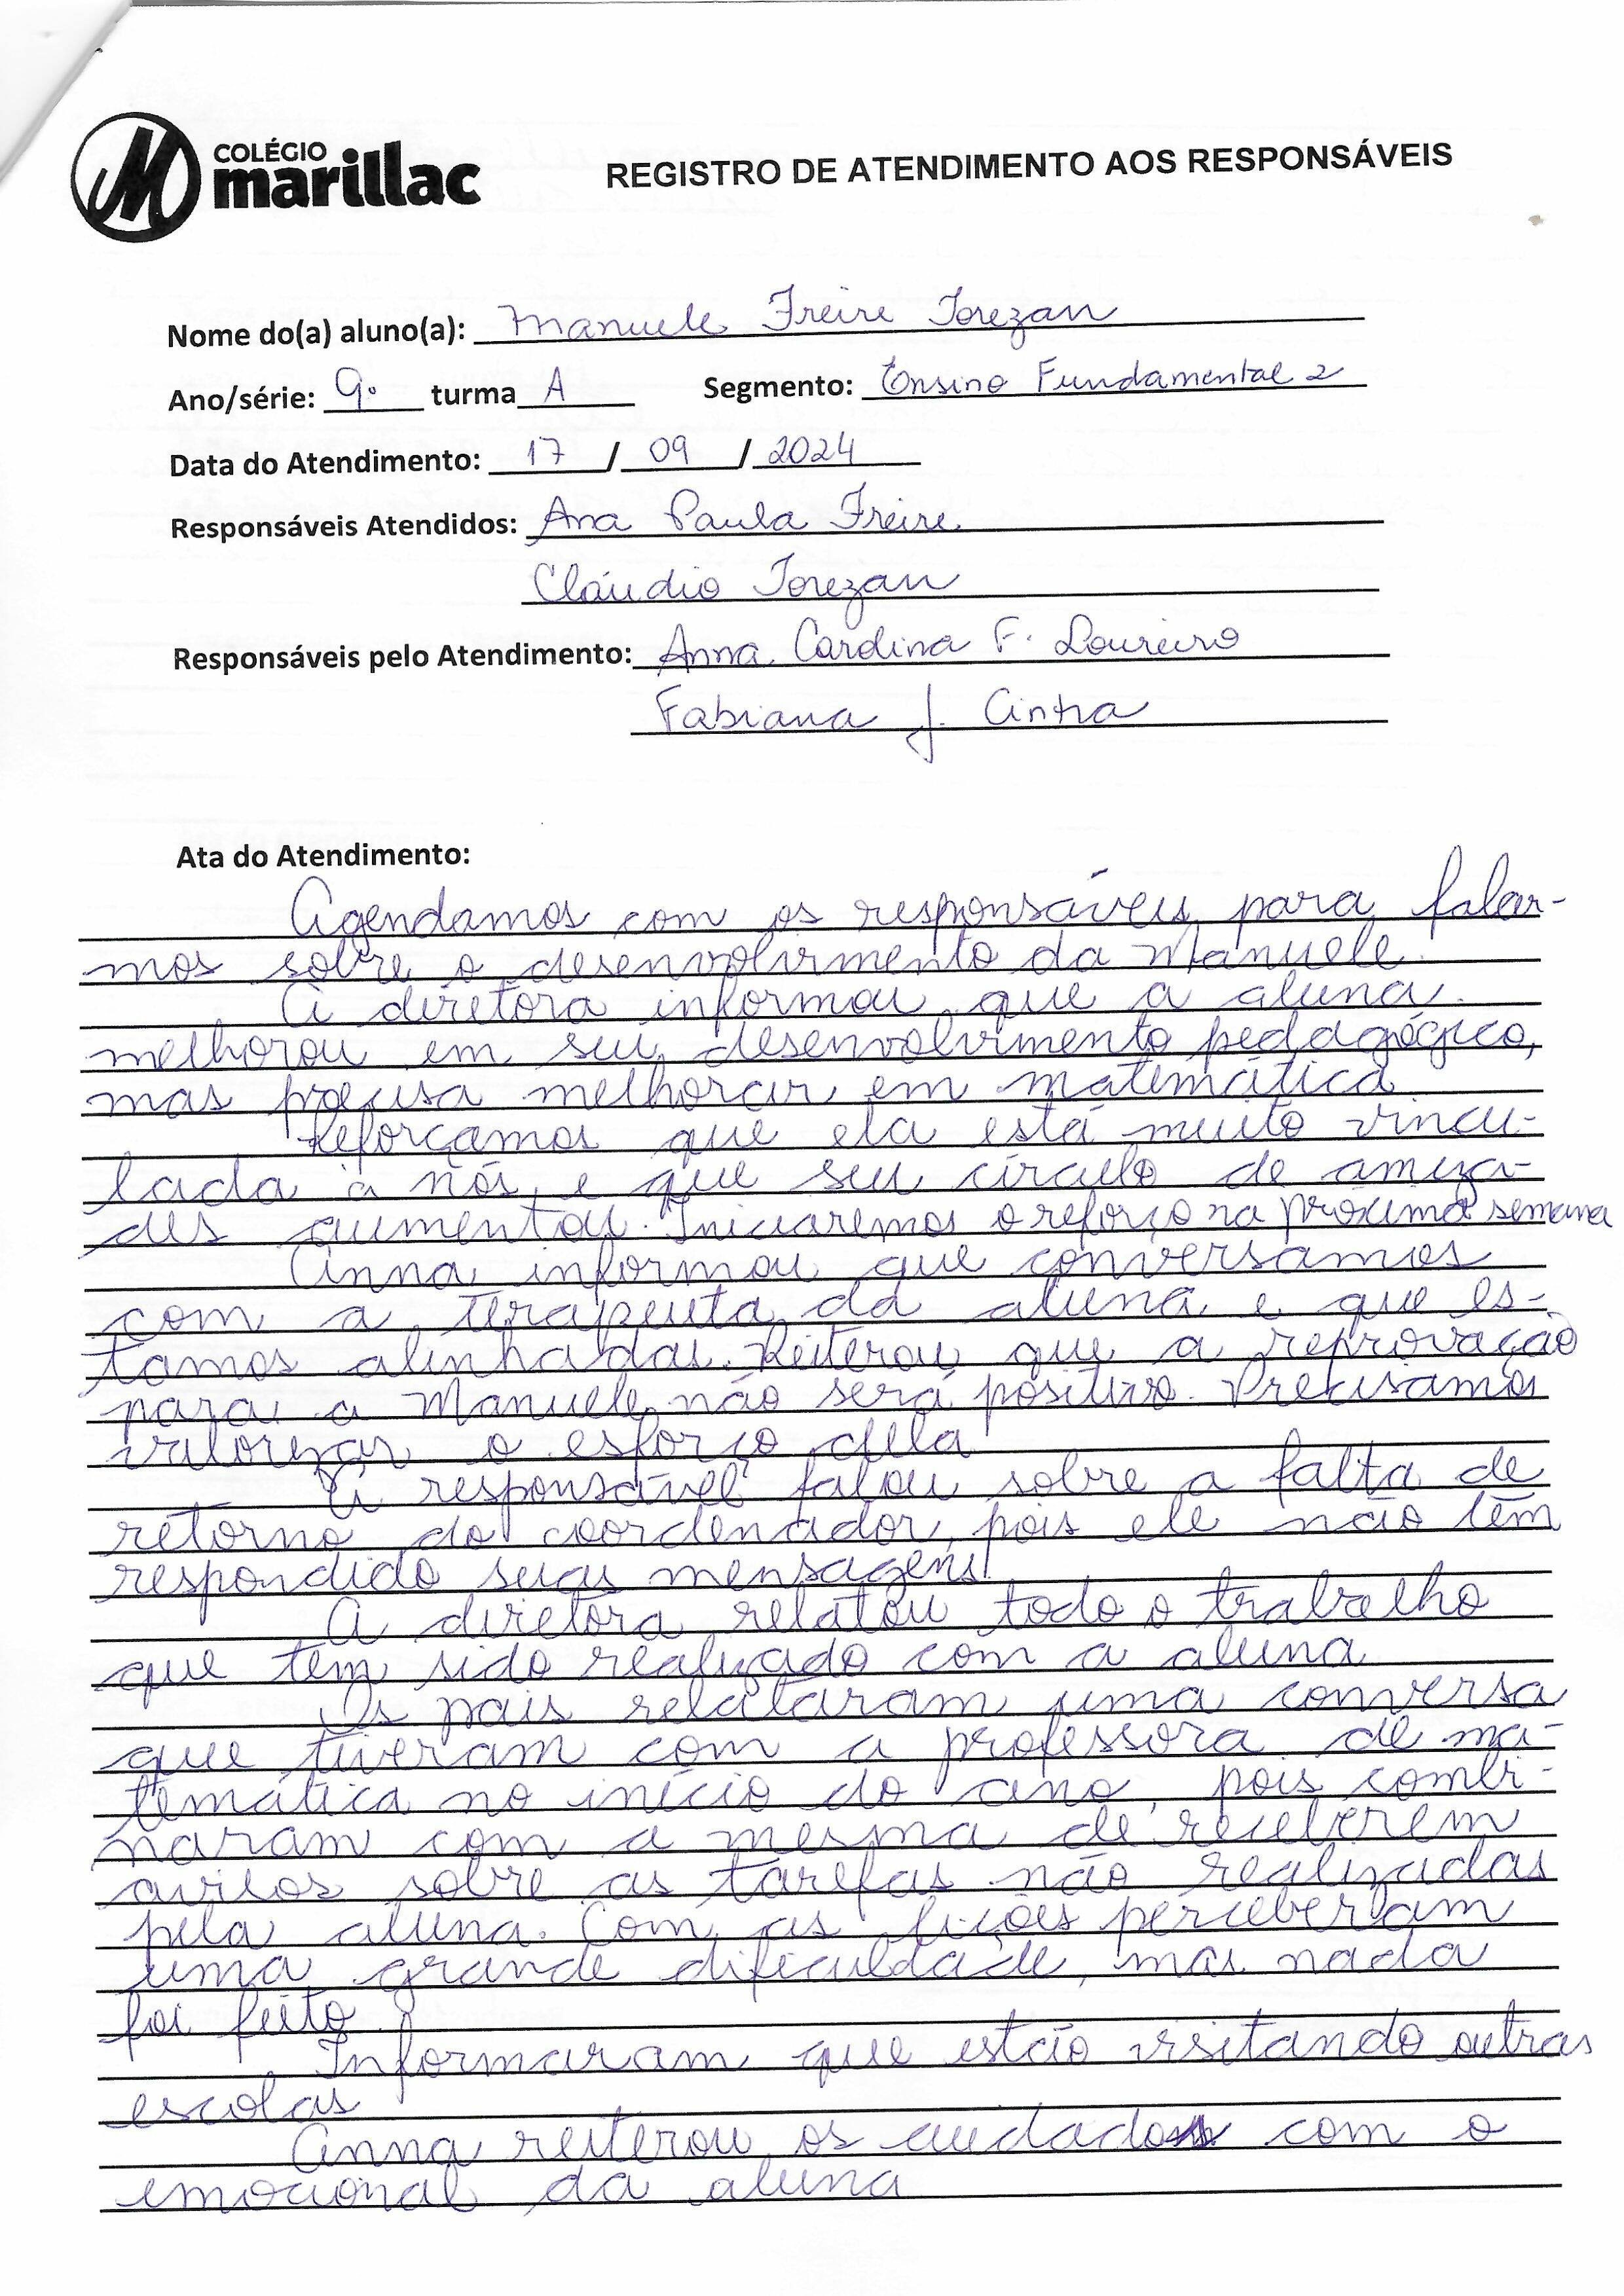 COLÉGIO
marillac
REGISTRO DE ATENDIMENTO AOS RESPONSÁVEIS
Nome do(a) aluno(a): Manuele Freire Torezan
Ano/série: 9º turma A Segmento: Ensino Fundamental 2
Data do Atendimento: 17 / 09 / 2024
Responsáveis Atendidos: Ana Paula Freire
Cláudio Torezan
Responsáveis pelo Atendimento: Anna Carolina F. Loureiro
Fabiana J. Cintra
Ata do Atendimento:
Agendamos com os responsáveis para falar-
mos sobre o desenvolvimento da Manuele.
A diretora informou que a aluna
melhorou em seu desenvolvimento pedagógico,
mas precisa melhorar em matemática
Reforçamos que ela está muito vincu-
lada à nós, e que seu círculo de amiza-
des aumentou. Iniciaremos o reforço na próxima semana
Anna informou que conversamos
com a terapeuta da aluna e que es-
tamos alinhadas. Reiterou que a reprovação
para a Manuele não será positivo. Precisamos
valorizar o esforço dela
A responsável falou sobre a falta de
retorno do coordenador, pois ele não têm
respondido suas mensagens.
A diretora relatou todo o trabalho
que tem sido realizado com a aluna
Os pais relataram uma conversa
que tiveram com a professora de ma-
temática no início do ano, pois combi-
naram com a mesma de receberem
avisos sobre as tarefas não realizadas
pela aluna. Com as lições perceberam
uma grande dificuldade, mas nada
foi feito.
Informaram que estão visitando outras
escolas
Anna reiterou os cuidados com o
emocional da aluna